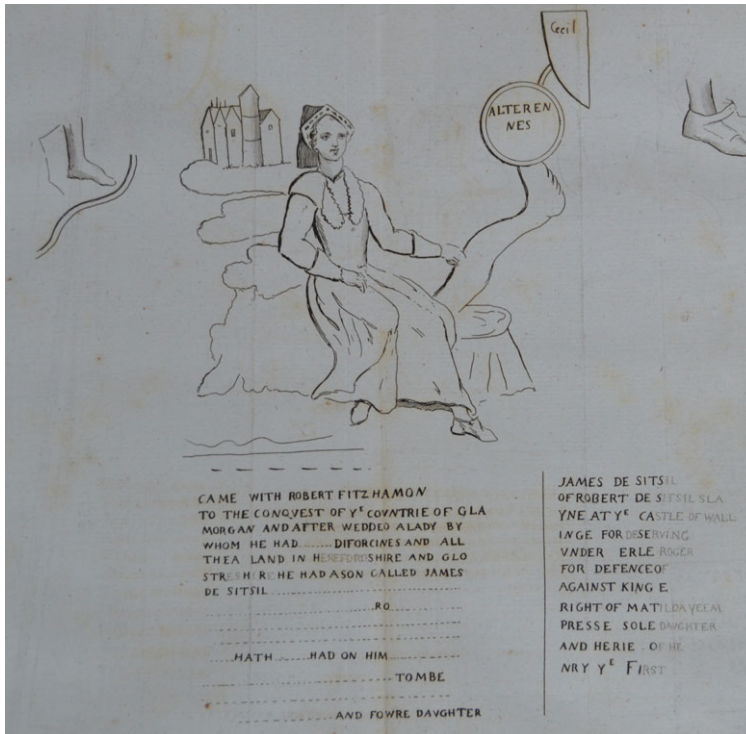 Cecil
ALTEREN
NES
CAME WITH ROBERT FITZHAMON
TO THE CONQVEST OF Yᴱ COVNTRIE OF GLA
MORGAN AND AFTER WEDDED A LADY BY
WHOM HE HAD ....... DIFORCINES AND ALL
THEA LAND IN HEREFORDSHIRE AND GLO
STRESHERE HE HAD A SON CALLED JAMES
DE SITSIL
RO
HATH ...... HAD ON HIM
TOMBE
AND FOWRE DAVGHTER
JAMES DE SITSIL
OF ROBERT DE SITSIL SLA
YNE AT Yᴱ CASTLE OF WALL
INGE FOR DESERVING
VNDER ERLE ROGER
FOR DEFENCE OF
AGAINST KING E
RIGHT OF MATILDA YE EM
PRESSE SOLE DAUGHTER
AND HERIE . OF HE
NRY Yᴱ FIRST